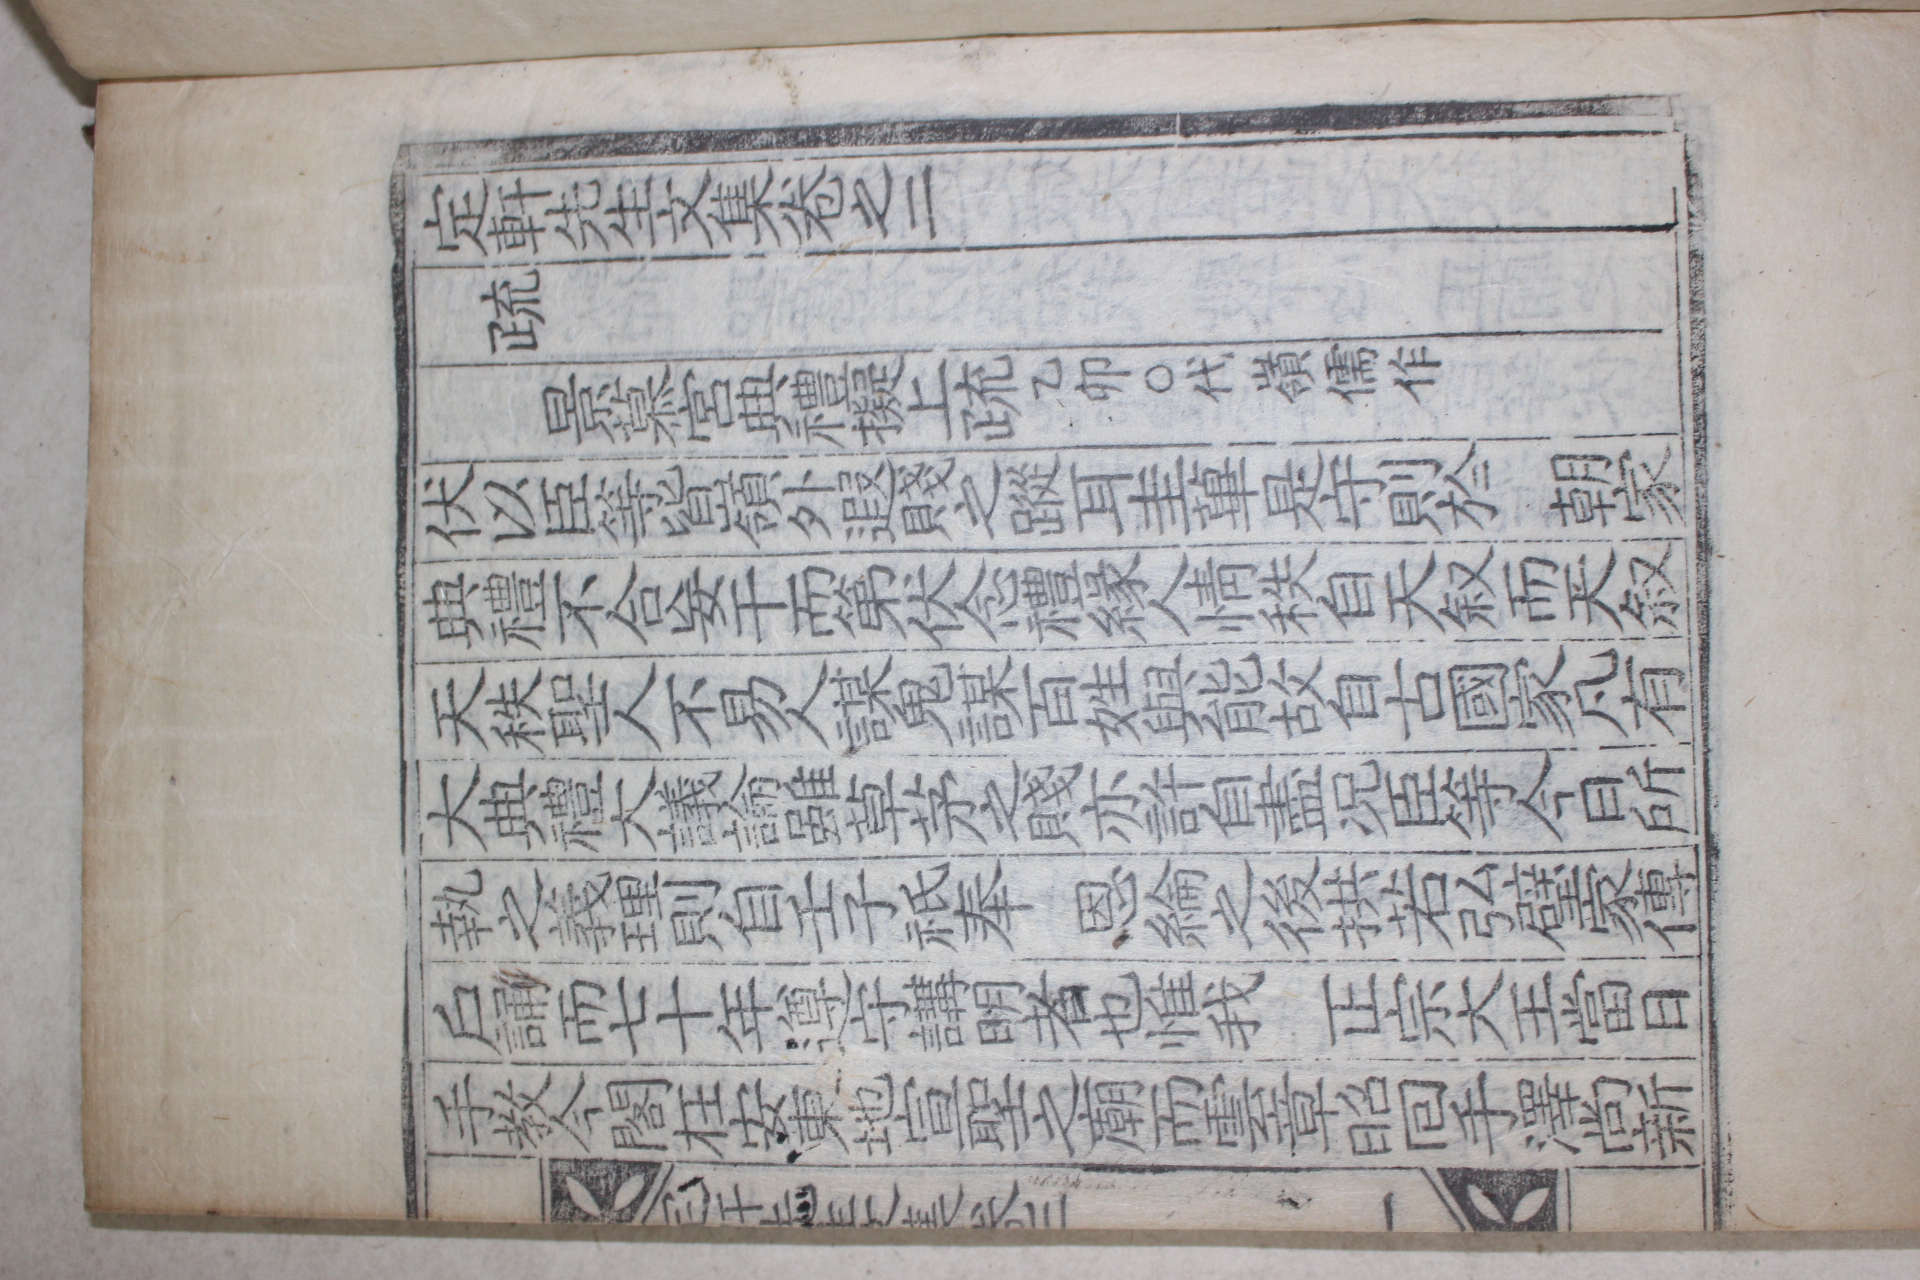 定軒先生文集卷之二
疏
景慕宮典禮擬上疏乙卯○代嶺儒作
伏以臣等皆嶺外遐賤之蹤耳圭蓽是守則於 朝家
典禮不合妄干而第伏念禮緣人情秩自天叙而天叙
天秩聖人不易人謀鬼謀百姓與能故自古國家凡有
大典禮大議論雖草茅之賤亦許自盡况臣等今日所
執之義理則自壬子祇奉 恩綸之後拱若弘璧家傳
戶誦而七十年遵守講明者也惟我 正宗大王當日
手教今閣在安東地宣聖之廟而雲章昭回手澤尚新
定軒先生文集卷二 一